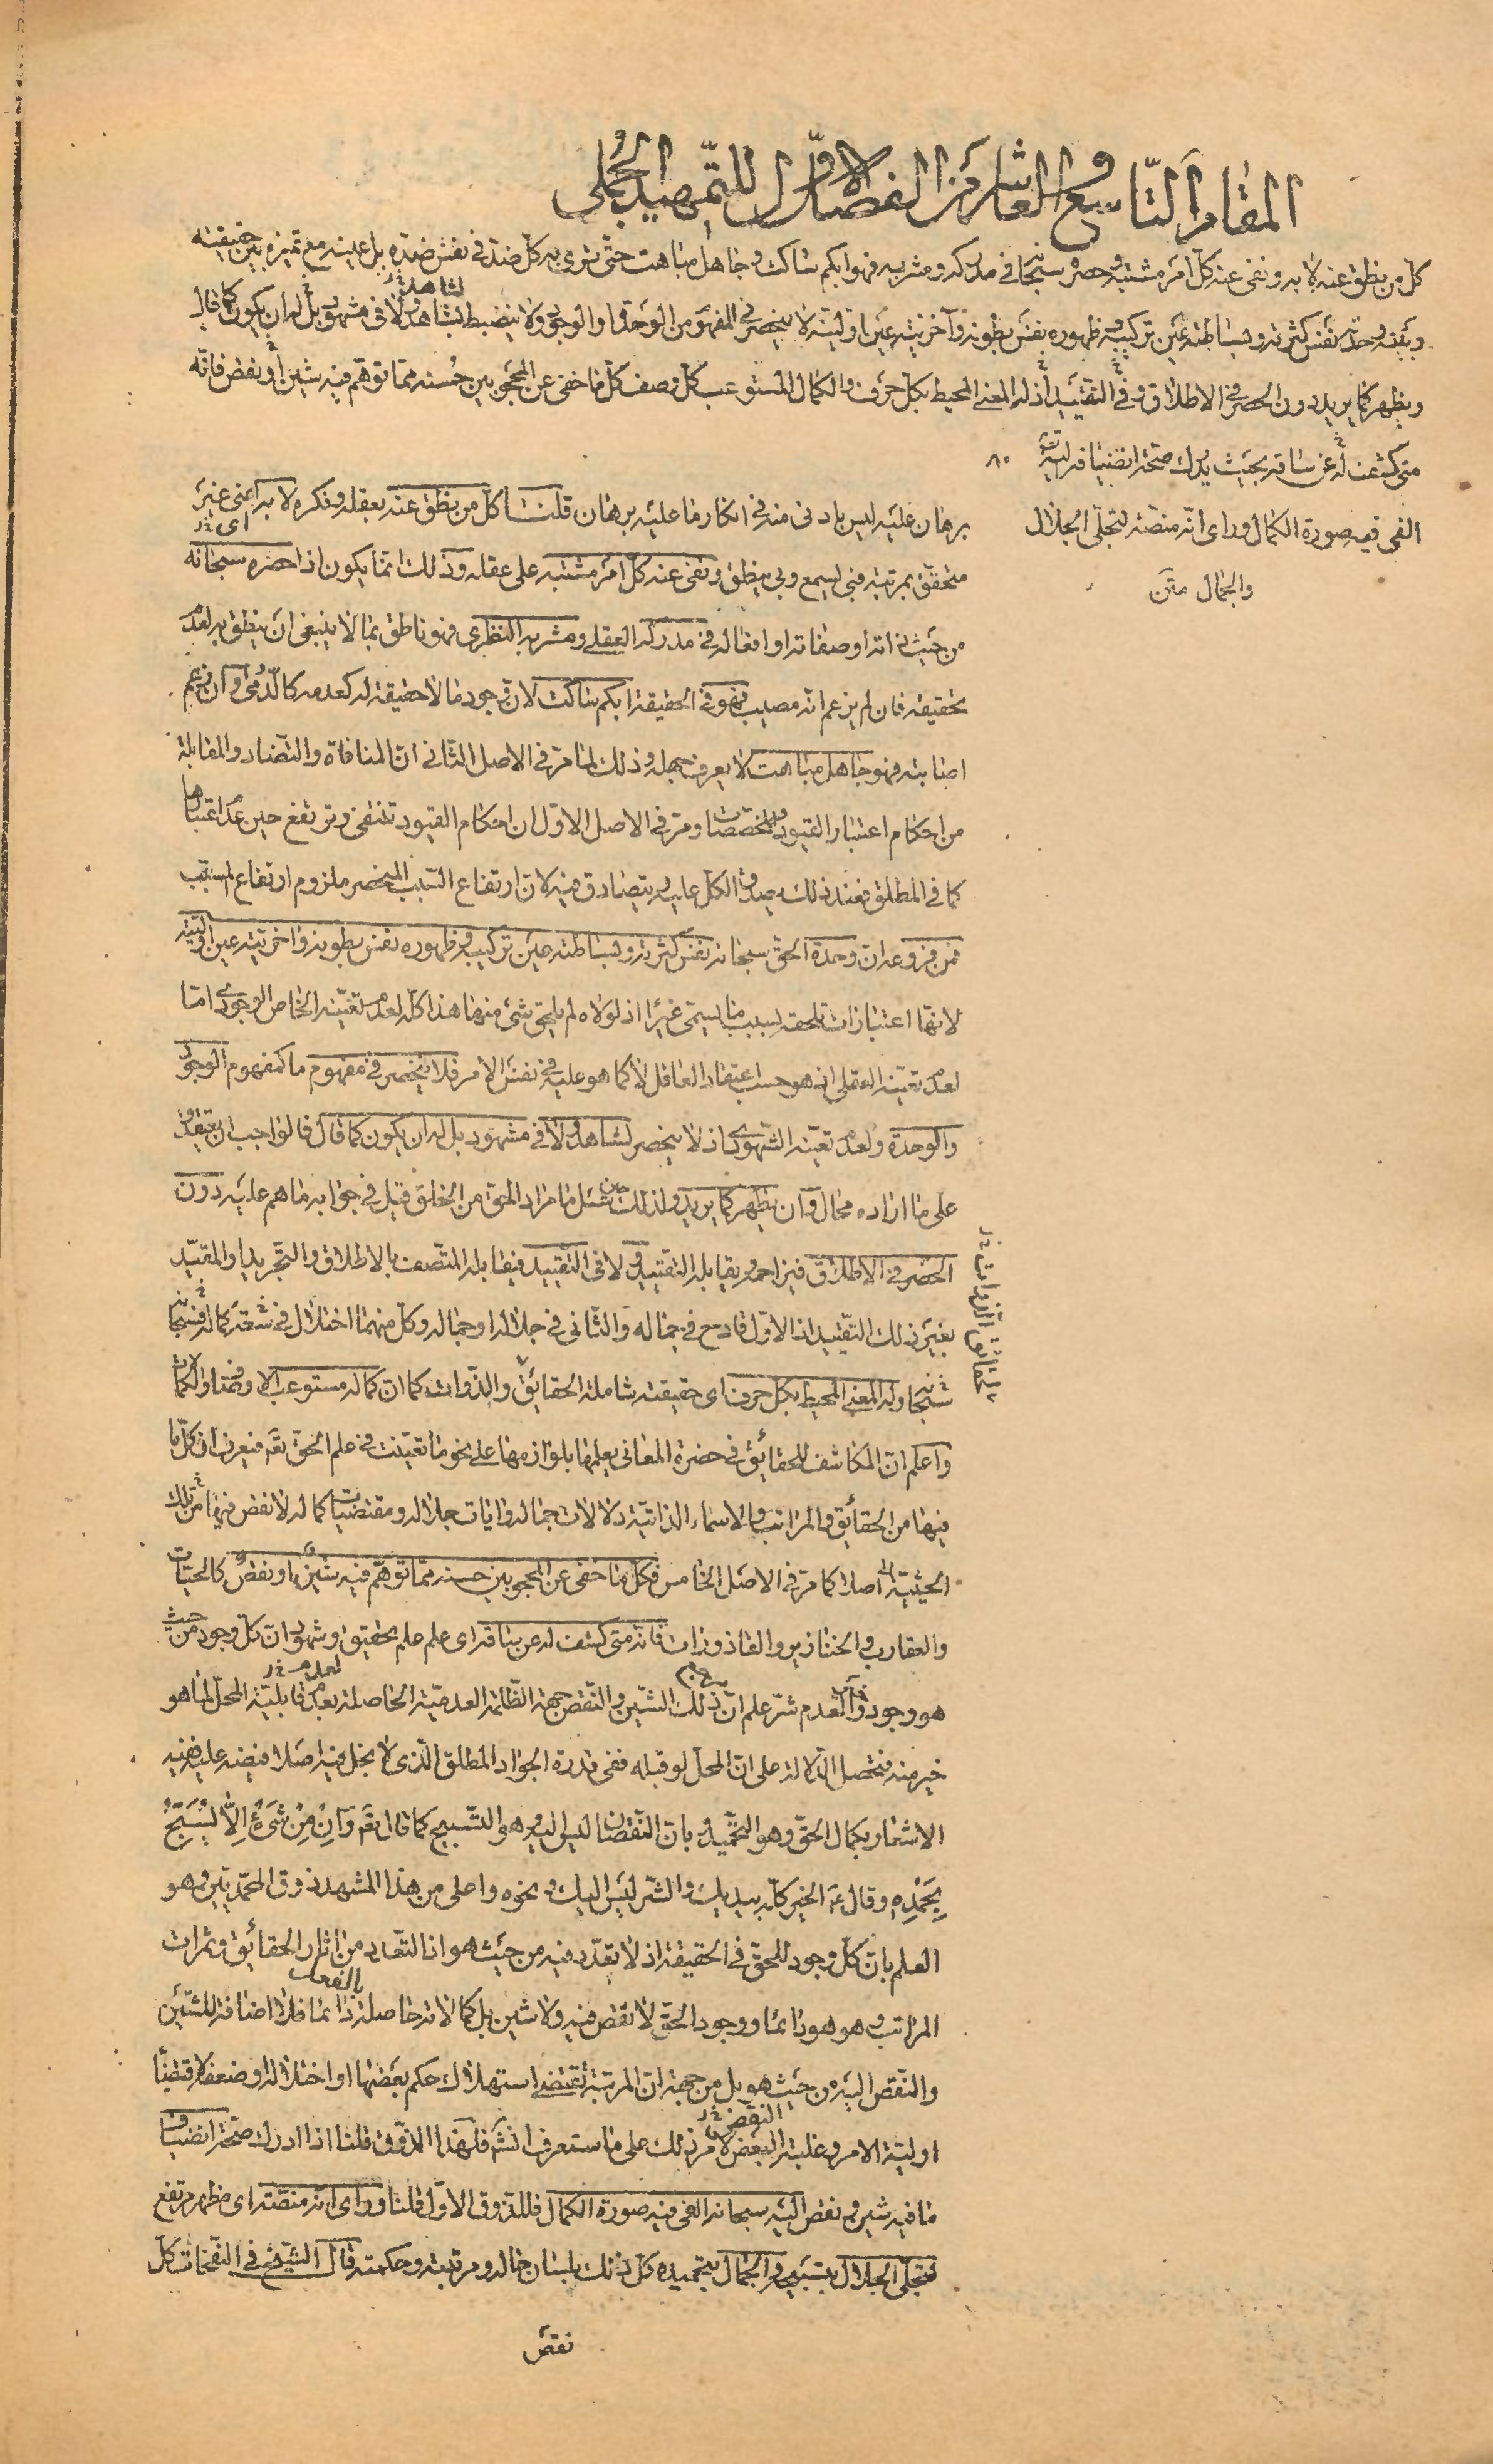 المقام التّاسع والعاشر من الفصل الاوّل للتّمهيد الجُملي
كل من نطق عنه لا به ونفى عنه كل امر مشتبه وحصره سبحانه في مدركه ومشربه فهو ابكم ساكت وجاهل مباهت حتّى يرى به كل ضدّ في نفس ضدّه بل عينه مع تميزه بين حقيقته
وبينه وحدته نفس كثرته وبساطته عين تركيبه وظهوره نفس بطونه وآخريّته عين اوليّته لا ينحصر في المفهوم من الوحدة او الوجود ولا ينضبط لشاهد ولا في مشهود بل له ان يكون كما قال
ويظهر كما يريد دون الحصر في الاطلاق وفي التقييد أذ له المعنى المحيط بكل حرف والكمال المستوعب كل وصف كل ما خفي عن المحجوبين حُسنه مما توهّم فيه شين أو نقص فانّه
متى كشف له عن ساقه بحيث يدرك صحّة انضيافه اليه ٨٠
الفى فيه صورة الكمال وراى انّه منصّة لتجلّى الجلال
والجمال متن
برهان عليه ليس بادنى منه في انكار ما عليه برهان قلنا كل من نطق عنه بعقله وفكره لا به اعني غير
متحقّق بمرتبة فبي يسمع وبي ينطق ونفى عنه كل امر مشتبه على عقله وذلك انّما يكون اذا حصره سبحانه
من حيث ذاته او صفاته او افعاله في مدركه العقلي ومشربه النظرى فهو ناطق بما لا ينبغي ان ينطق به لعدم
تحقيقه فان لم يزعم انّه مصيب فهو في الحقيقة ابكم ساكت لان وجود ما لا حقيقة له كعدمه كالدّمى وان زعم
اصابته فهو جاهل مباهت لا يعرف جهله وذلك لما مرّ في الاصل الثّاني انّ المنافاة والتضاد والمقابلة
من احكام اعتبار القيود والمخصّصات ومرّ في الاصل الاوّل ان احكام القيود تنتفي وترتفع حين عدم اعتبارها
كما في المطلق فعند ذلك يصدق الكل عليه ويتصادق فيه لانّ ارتفاع السّبب المنحصر ملزوم ارتفاع المسبّب
فمن فروعه انّ وحدة الحقّ سبحانه نفس كثرته وبساطته عين تركيبه وظهوره نفس بطونه وآخريّته عين اوليّته
لانّها اعتبارات تلحقه بسبب ما يسمّى غيرا اذ لولاه لم يلحق شئ منها هذا كلّه لعدم تعيّنه الخاص الوجودى امّا
لعدم تعيّنه العقلي اذ هو حسب اعتقاد العاقل لا كما هو عليه في نفس الامر فلا ينحصر في مفهوم ما كمفهوم الوجود
والوحدة ولعدم تعيّنه الشّهودى اذ لا ينحصر لشاهد ولا في مشهود بل له ان يكون كما قال فالواجب ان يعتقد
على ما اراده محال وان يظهر كما يريد ولذلك حين سئل ما مراد الحق من الخلق قيل في جوابه ما هم عليه دون
الحصر في الاطلاق فيزاحمه ويقابله التقييد ولا في التقييد فيقابله المتّصف بالاطلاق والتّجريد او المقيّد
بغير ذلك التقييد اذ الاوّل قادح في جماله والثّاني في جلاله او جماله وكل منهما اختلال في سعة كماله
وله المعنى المحيط بكل حرف اى حقيقته شاملة الحقائق والذّوات كما ان كماله مستوعب
واعلم انّ المكاشف للحقائق في حضرة المعاني يعلمها بلوازمها على نحو ما تعيّنت في علم الحقّ تعَ فيعرف ان كل ما
فيها من الحقائق والمراتب والاسماء الذاتيّة دلالات جماله وايات جلاله ومقتضيات كماله لا نقص فيها من تلك
الحيثيّة اصلا كما مرّ في الاصل الخامس فكل ما خفى عن المحجوبين حسنه ممّا توهّم فيه شين او نقص كالحيّات
والعقارب والخنازير والقاذورات فانّه متى كشف له عن ساقه اى علم علم تحقيق وشهود ان كل وجود من حيث
هو وجود خير والعدم شرّ علم انّ ذلك الشّين والنّقص جهة الظّلمة العدميّة الحاصلة بعدم قابليّة المحل لما هو
خير منه فتحصل الدّلالة على انّ المحل لو قبله ففى قدرة الجواد المطلق الّذى لا بخل فيه اصلا فيضه عليه ففيه
الاشعار بكمال الحقّ وهو التحّميد وبانّ النّقصان ليس اليه وهو التسبيح كما قال تعَ وَاِنْ مِنْ شَىْءٍ اِلاَّ يُسَبِّحُ
بِحَمْدِهِ وقال عَ الخير كلّه بيديك والشّر ليس اليك ونحوه واعلى من هذا المشهد ذوق المحمّديّين وهو
العلم بان كل وجود للحقّ في الحقيقة اذ لا تعدّد فيه من حيث هو اذ التّعدد من اثار الحقائق وثمرات
المراتب وهو هو دائما ووجود الحق لا نقص فيه ولا شين بل كمالاته حاصلة دائما بالفعل فلا اضافة للشّين
والنّقص اليه من حيث هو بل من جهة انّ المرتبة تقتضى استهلاك حكم بعضها او اختلاله او ضعفه لاقتضاء
اوليّة الامر وغلبة البعض لامر ذلك على ما ستعرف انشَ فلهذا الذّوق قلنا اذا ادرك صحّة انضياف
ما فيه شين ونقص اليه سبحانه الفى فيه صورة الكمال فللذوق الاوّل قلنا وراى انه منصّته اى مظهر مرتفع
لتجلّى الجلال بتسبيحه والجمال بتحميده كل ذلك بلسان حاله ومرتبته وحكمته قال الشّيخ في النّفحات كل
نقص